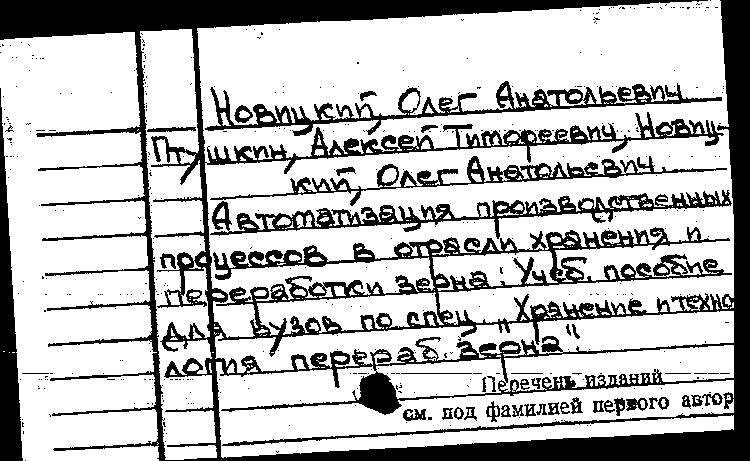 Новицкий, Олег Анатольевич
Птушкин, Алексей Тимофеевич, Новиц-
кий, Олег Анатольевич.
Автоматизация производственных
процессов в отрасли хранения и
переработки зерна: Учеб. пособие
для вузов по спец. "Хранение и техно
логия перераб. зерна".
Перечень изданий
см. под фамилией первого автор